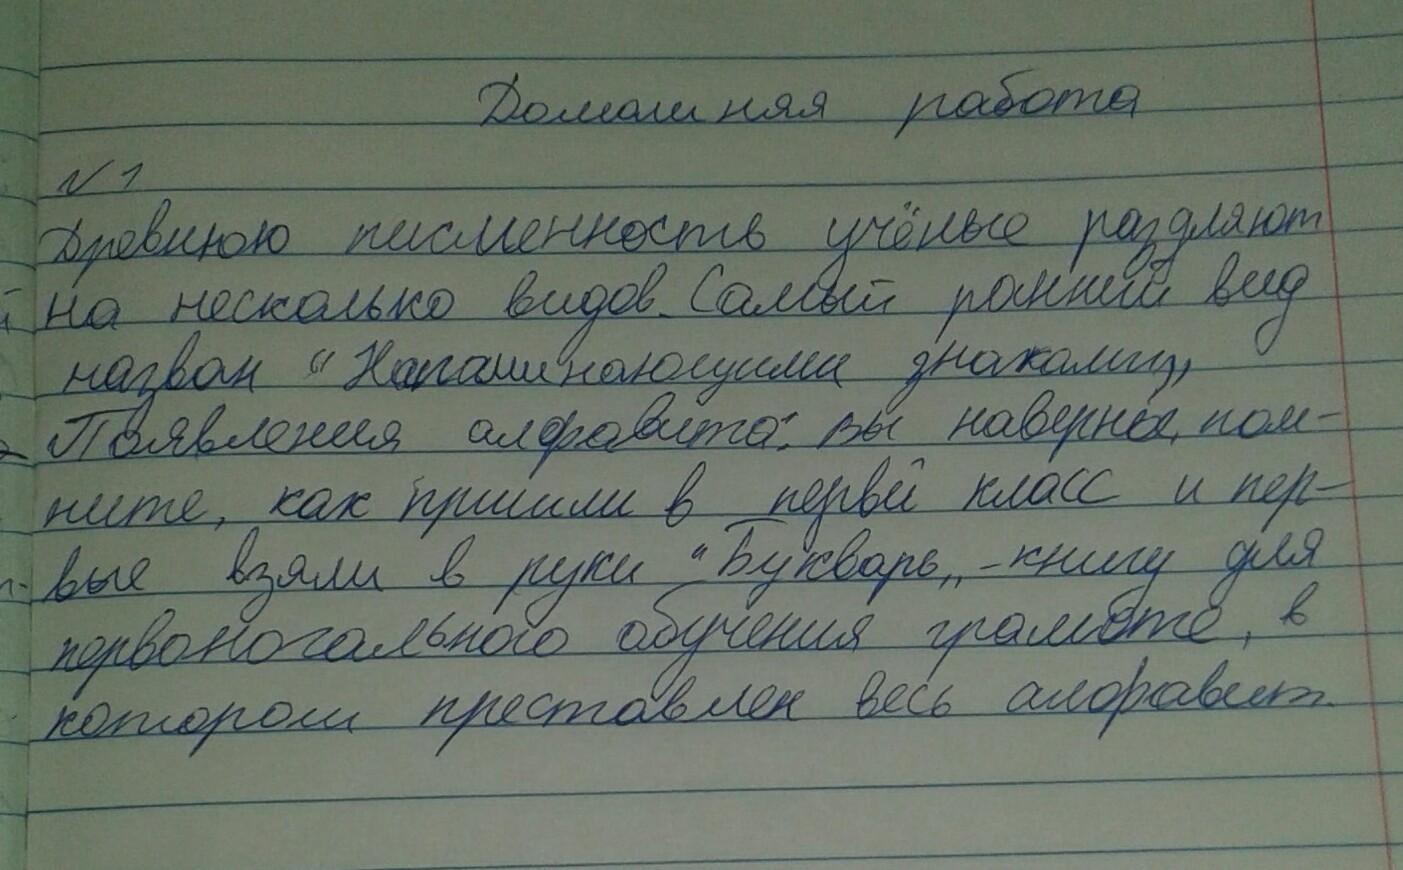 Домашняя работа
N 1
Древнюю писменность учёные раздляют
на несколько видов. Самый ранний вид
назван "Напоминающими знаками„
Появления алфавита: вы наверные, пом-
ните, как пришли в первей класс и пер-
вые взяли в руки "Букварь„ - книгу для
первоночального обучения грамоте, в
котором преставлен весь алфавит.